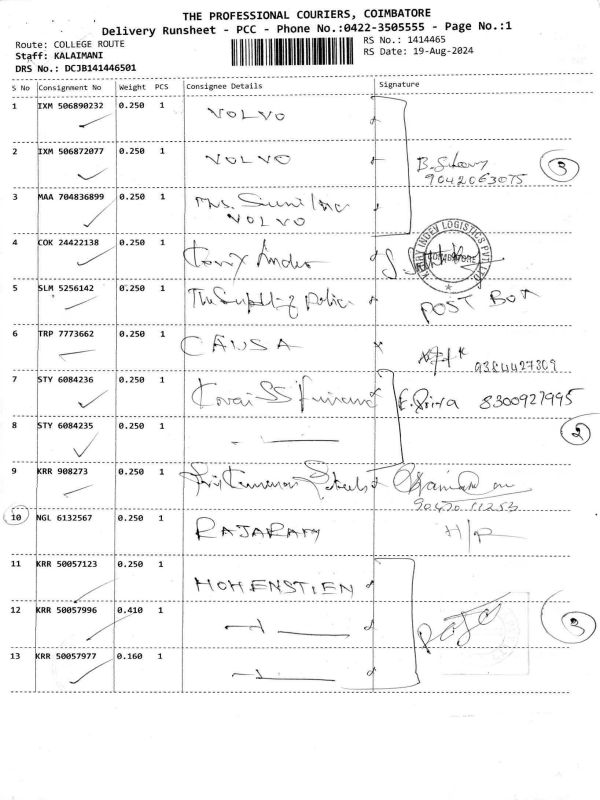 THE PROFESSIONAL COURIERS, COIMBATORE
Delivery Runsheet - PCC - Phone No.:0422-3505555 - Page No.:1
Route: COLLEGE ROUTE
RS No.: 1414465
Staff: KALAIMANI
RS Date: 19-Aug-2024
DRS No.: DCJB141446501
S No Consignment No Weight PCS Consignee Details Signature
1 IXM 506890232 0.250 1 VOLVO
2 IXM 506872077 0.250 1 VOLVO
9042063075
3
3 MAA 704836899 0.250 1
VOLVO
4 COK 24422138 0.250 1
KERRY INDEV LOGISTICS PVT. LTD.
COIMBATORE
5 SLM 5256142 0.250 1 POST BOX
6 TRP 7773662 0.250 1 CAUSA
9384427309
7 STY 6084236 0.250 1 8300927995
8 STY 6084235 0.250 1
2
9 KRR 908273 0.250 1
10 NGL 6132567 0.250 1 RAJARAM H/P
11 KRR 50057123 0.250 1 HOHENSTIEN
12 KRR 50057996 0.410 1
3
13 KRR 50057977 0.160 1